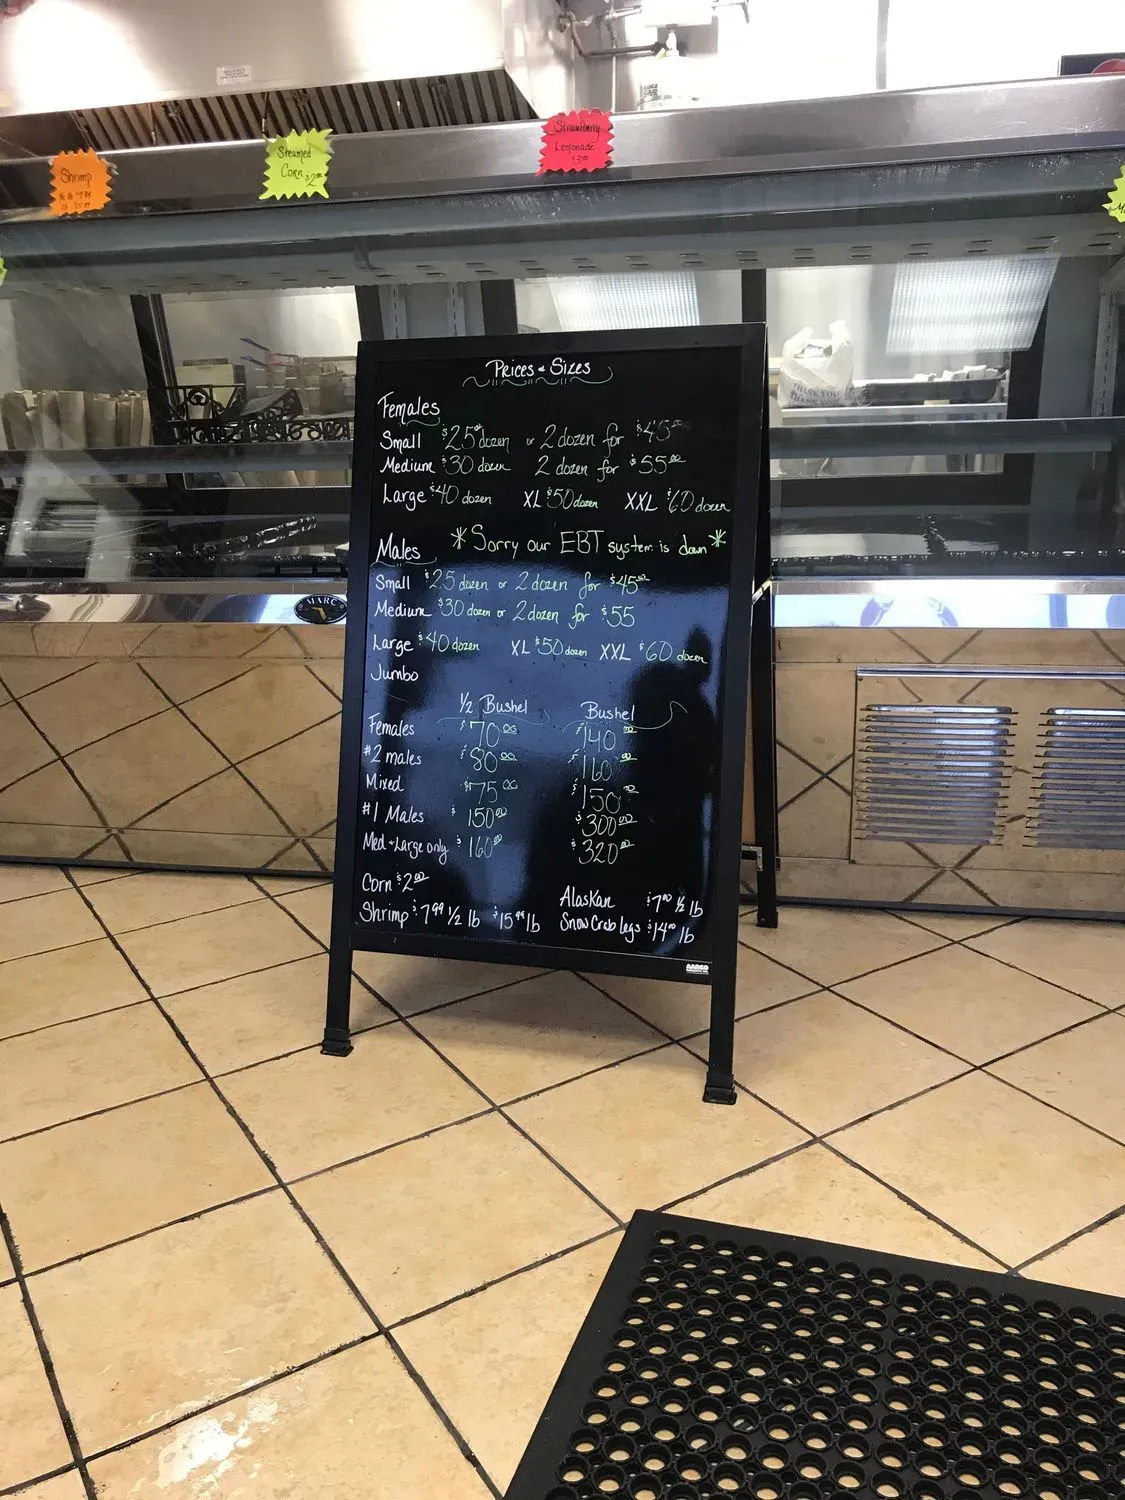 Shrimp
Steamed
Corn $2.00
Strawberry
Lemonade
THANK YOU
THANK YOU
Prices & Sizes
Females
Small $25.00 dozen or 2 dozen for $45.00
Medium $30 dozen 2 dozen for $55.00
Large $40 dozen XL $50 dozen XXL $60 dozen
*Sorry our EBT system is down*
Males
Small $25 dozen or 2 dozen for $45.00
Medium $30 dozen or 2 dozen for $55
Large $40 dozen XL $50 dozen XXL $60 dozen
Jumbo
1/2 Bushel Bushel
Females $70.00 $140.00
#2 males $80.00 $160.00
Mixed $75.00 $150.00
#1 Males $150.00 $300.00
Med & Large only $160.00 $320.00
Corn $2.00
Shrimp $7.99 1/2 lb $15.99 lb
Alaskan $7.00 1/2 lb
Snow Crab legs $14.00 lb
MARC
AARCO